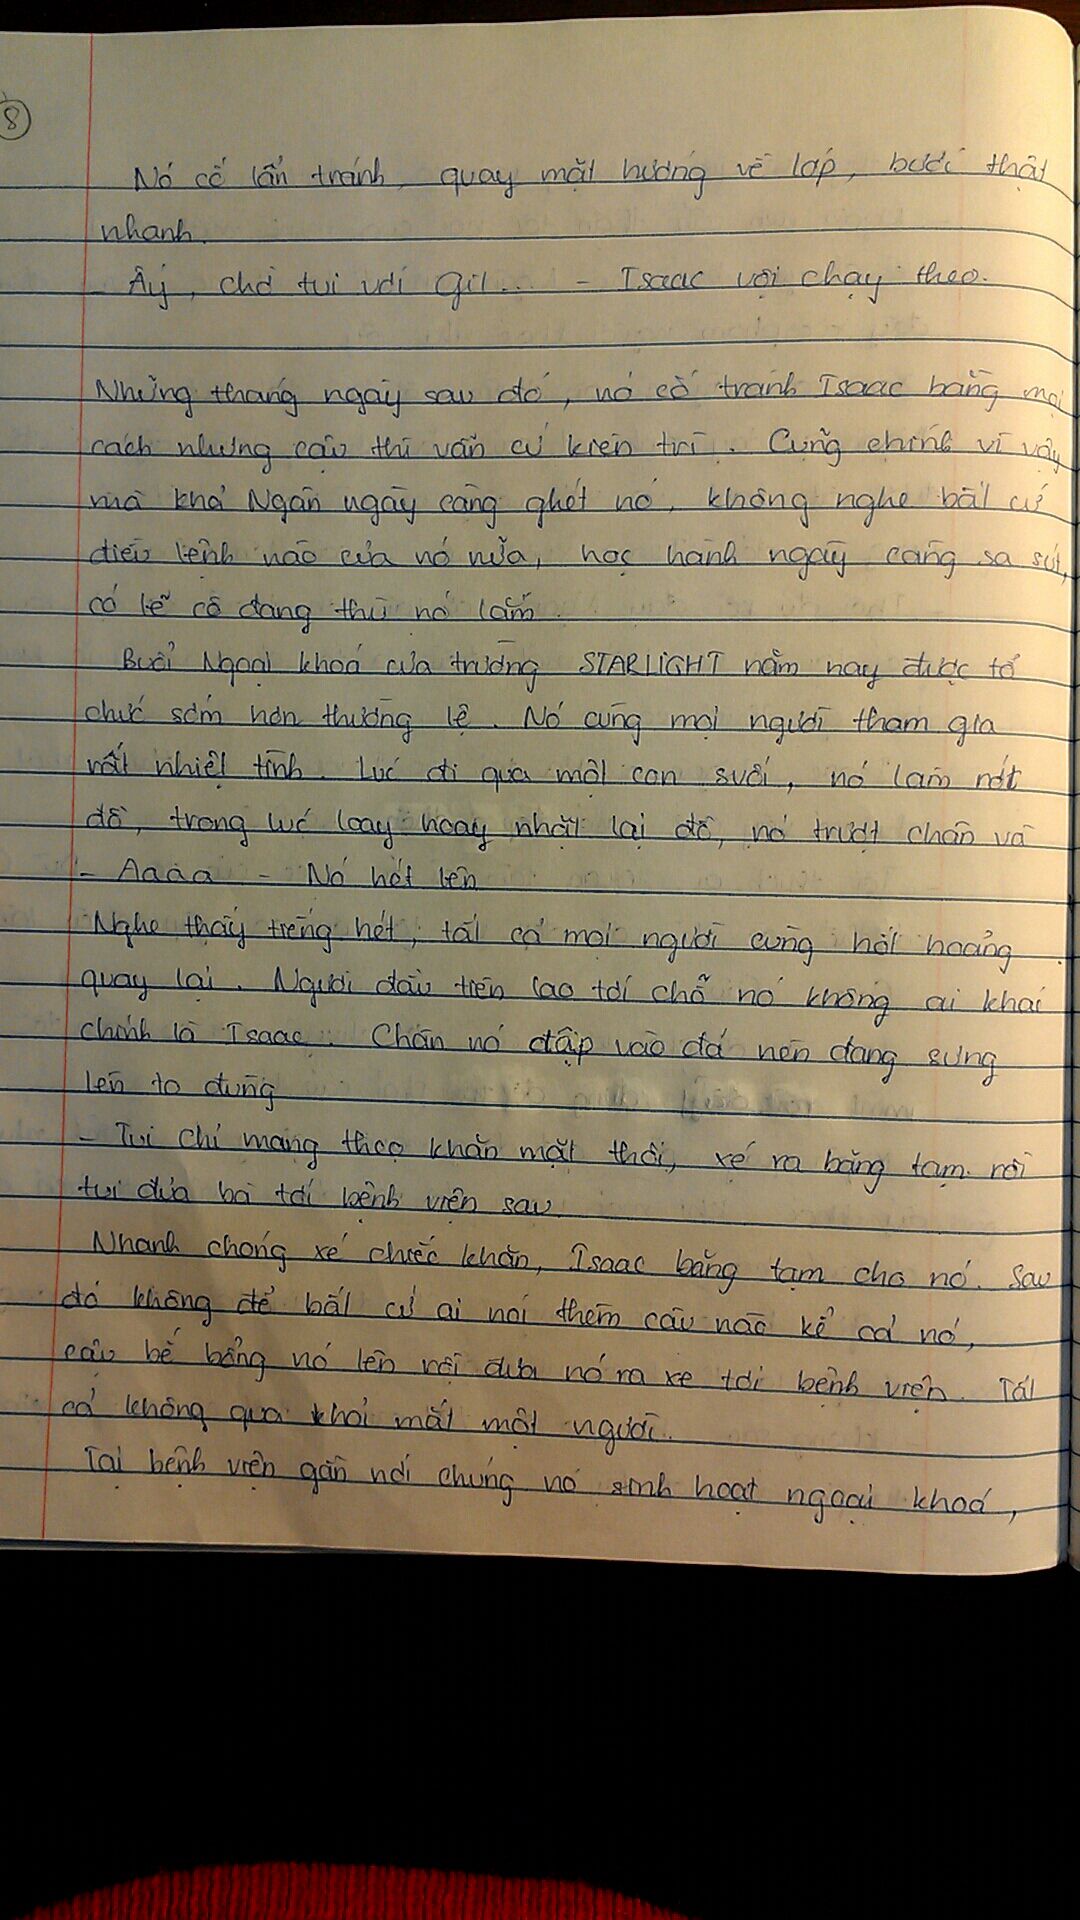 8
Nó cố lẩn tránh, quay mặt hướng về lớp, bước thật
nhanh.
- Ấy, chờ tui với Gil... - Isaac vội chạy theo.
Những tháng ngày sau đó, nó cố tránh Isaac bằng mọi
cách nhưng cậu thì vẫn cứ kiên trì. Cũng chính vì vậy
mà Khả Ngân ngày càng ghét nó, không nghe bất cứ
điều lệnh nào của nó nữa, học hành ngày càng sa sút,
có lẽ cô đang thù nó lắm.
Buổi Ngoại khoá của trường STARLIGHT năm nay được tổ
chức sớm hơn thường lệ. Nó cùng mọi người tham gia
rất nhiệt tình. Lúc đi qua một con suối, nó làm rớt
đồ, trong lúc loay hoay nhặt lại đồ, nó trượt chân và
- Aaaa - Nó hét lên
Nghe thấy tiếng hét, tất cả mọi người cùng hốt hoảng
quay lại. Người đầu tiên lao tới chỗ nó không ai khác
chính là Isaac. Chân nó đập vào đá nên đang sưng
lên to đùng
- Tui chỉ mang theo khăn mặt thôi, xé ra băng tạm rồi
tui đưa bà tới bệnh viện sau.
Nhanh chóng xé chiếc khăn, Isaac băng tạm cho nó. Sau
đó không để bất cứ ai nói thêm câu nào kể cả nó,
cậu bế bổng nó lên rồi đưa nó ra xe tới bệnh viện. Tất
cả không qua khỏi mắt một người.
Tại bệnh viện gần nơi chúng nó sinh hoạt ngoại khoá,